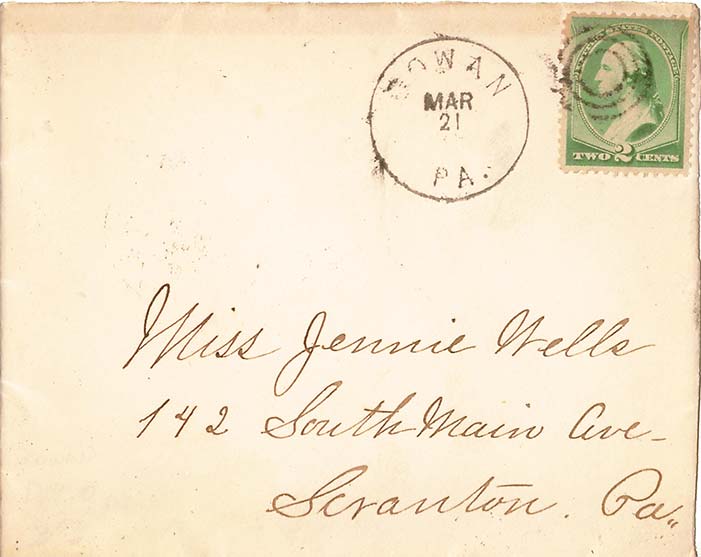 MAR
21
PA.
UNITED STATES POSTAGE
TWO 2 CENTS
Miss Jennie Wells
142 South Main Ave-
Scranton. Pa,,